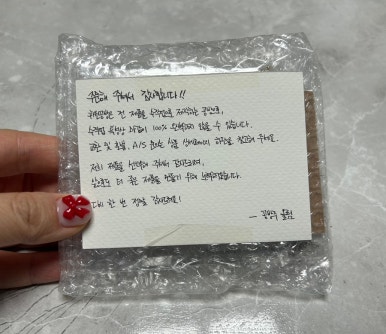 주문해 주셔서 감사합니다!!
전 제품을 수작업으로 제작하는 공방으로,
수작업 특성상 마감이 100% 완벽하지 않을 수 있습니다.
교환 및 환불, A/S 문의는 상품 상세페이지 하단을 참고해 주세요.
저희 제품을 선택해 주셔서 감사드리며,
앞으로도 더 좋은 제품을 만들기 위해 노력하겠습니다.
다시 한 번 정말 감사해요!
— 드림